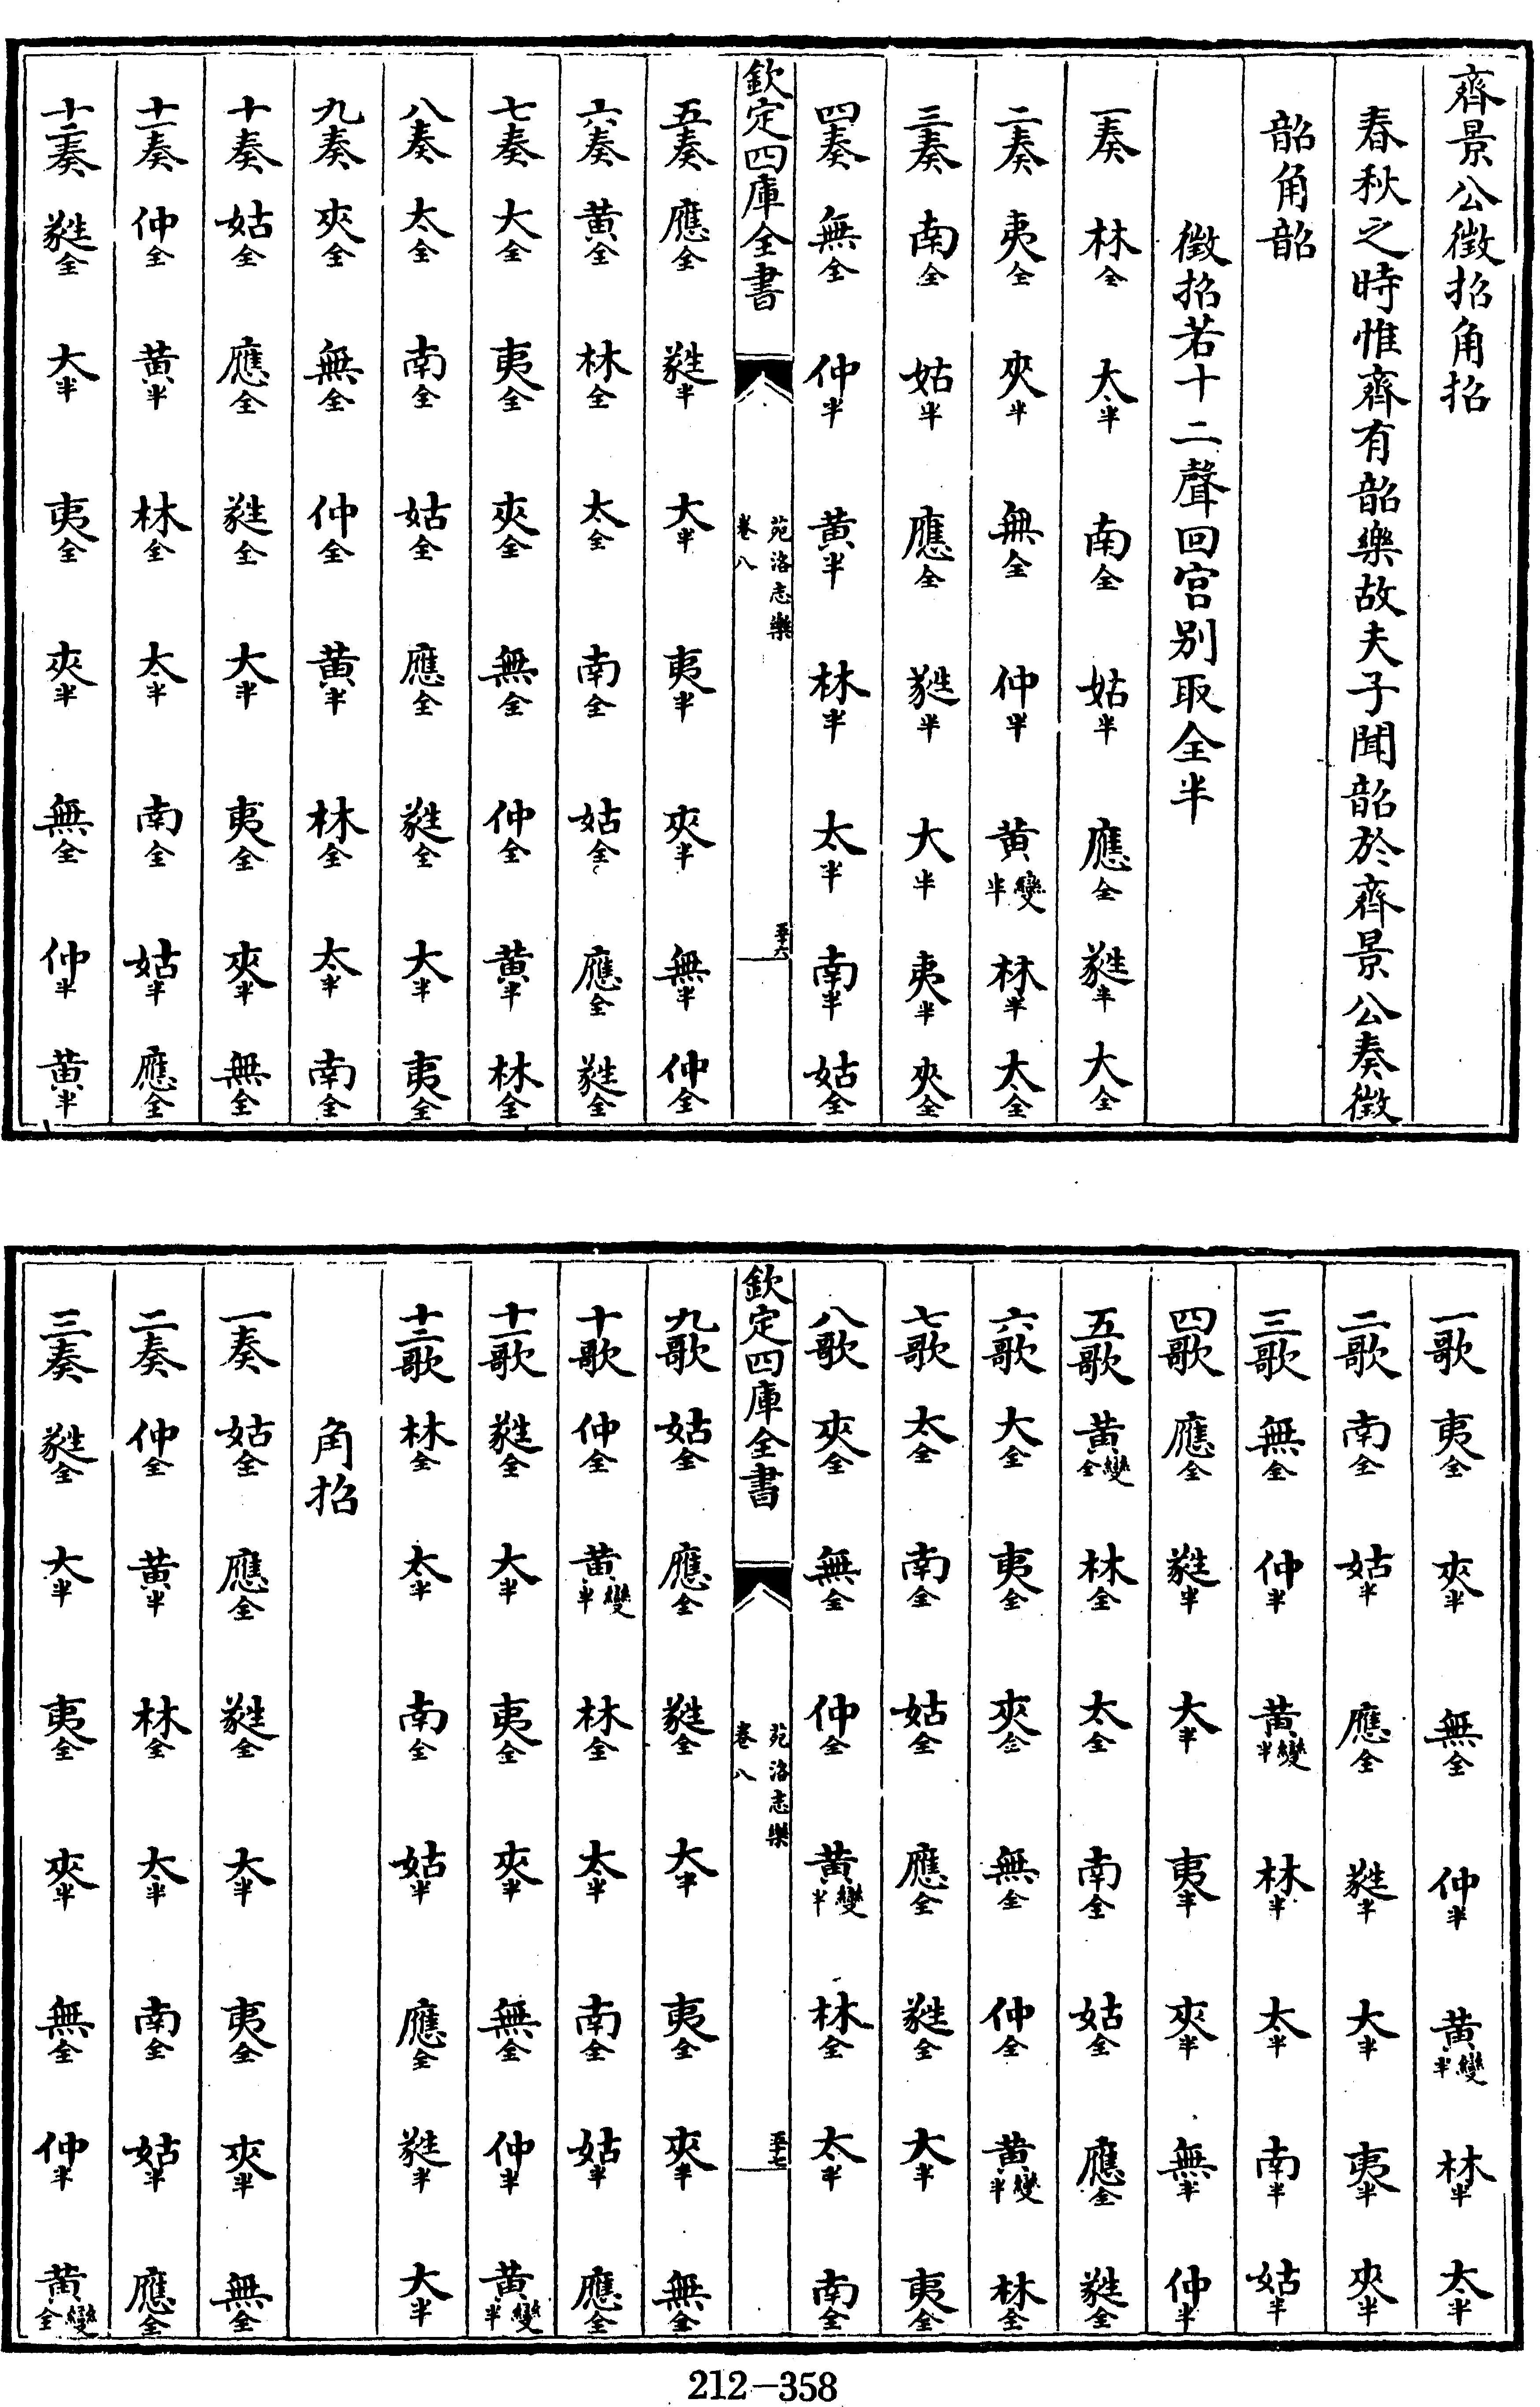 齊景公徵招角招
春秋之時惟齊有韶樂故夫子聞韶於齊景公奏徵
韶角韶
徵招若十二聲回宮別取全半
一奏 林全 太半 南全 姑半 應全 蕤半 大全
二奏 夷全 夾半 無全 仲半 黃變半 林半 太全
三奏 南全 姑半 應全 蕤半 大半 夷半 夾全
四奏 無全 仲半 黃半 林半 太半 南半 姑全
欽定四庫全書 苑洛志樂 卷八 五十六
五奏 應全 蕤半 大半 夷半 夾半 無半 仲全
六奏 黃全 林全 太全 南全 姑全 應全 蕤全
七奏 大全 夷全 夾全 無全 仲全 黃半 林全
八奏 太全 南全 姑全 應全 蕤全 大半 夷全
九奏 夾全 無全 仲全 黃半 林全 太半 南全
十奏 姑全 應全 蕤全 大半 夷全 夾半 無全
十一奏 仲全 黃半 林全 太半 南全 姑半 應全
十二奏 蕤全 大半 夷全 夾半 無全 仲半 黃半
一歌 夷全 夾半 無全 仲半 黃變半 林半 太半
二歌 南全 姑半 應全 蕤半 大半 夷半 夾半
三歌 無全 仲半 黃變半 林半 太半 南半 姑半
四歌 應全 蕤半 大半 夷半 夾半 無半 仲半
五歌 黃變全 林全 太全 南全 姑全 應全 蕤全
六歌 大全 夷全 夾全 無全 仲全 黃變半 林全
七歌 太全 南全 姑全 應全 蕤全 大半 夷全
八歌 夾全 無全 仲全 黃變半 林全 太半 南全
欽定四庫全書 苑洛志樂 卷八 五十七
九歌 姑全 應全 蕤全 大半 夷全 夾半 無全
十歌 仲全 黃變半 林全 太半 南全 姑半 應全
十一歌 蕤全 大半 夷全 夾半 無全 仲半 黃變半
十二歌 林全 太半 南全 姑半 應全 蕤半 大半
角招
一奏 姑全 應全 蕤全 大半 夷全 夾半 無全
二奏 仲全 黃半 林全 太半 南全 姑半 應全
三奏 蕤全 大半 夷全 夾半 無全 仲半 黃變全
212-358